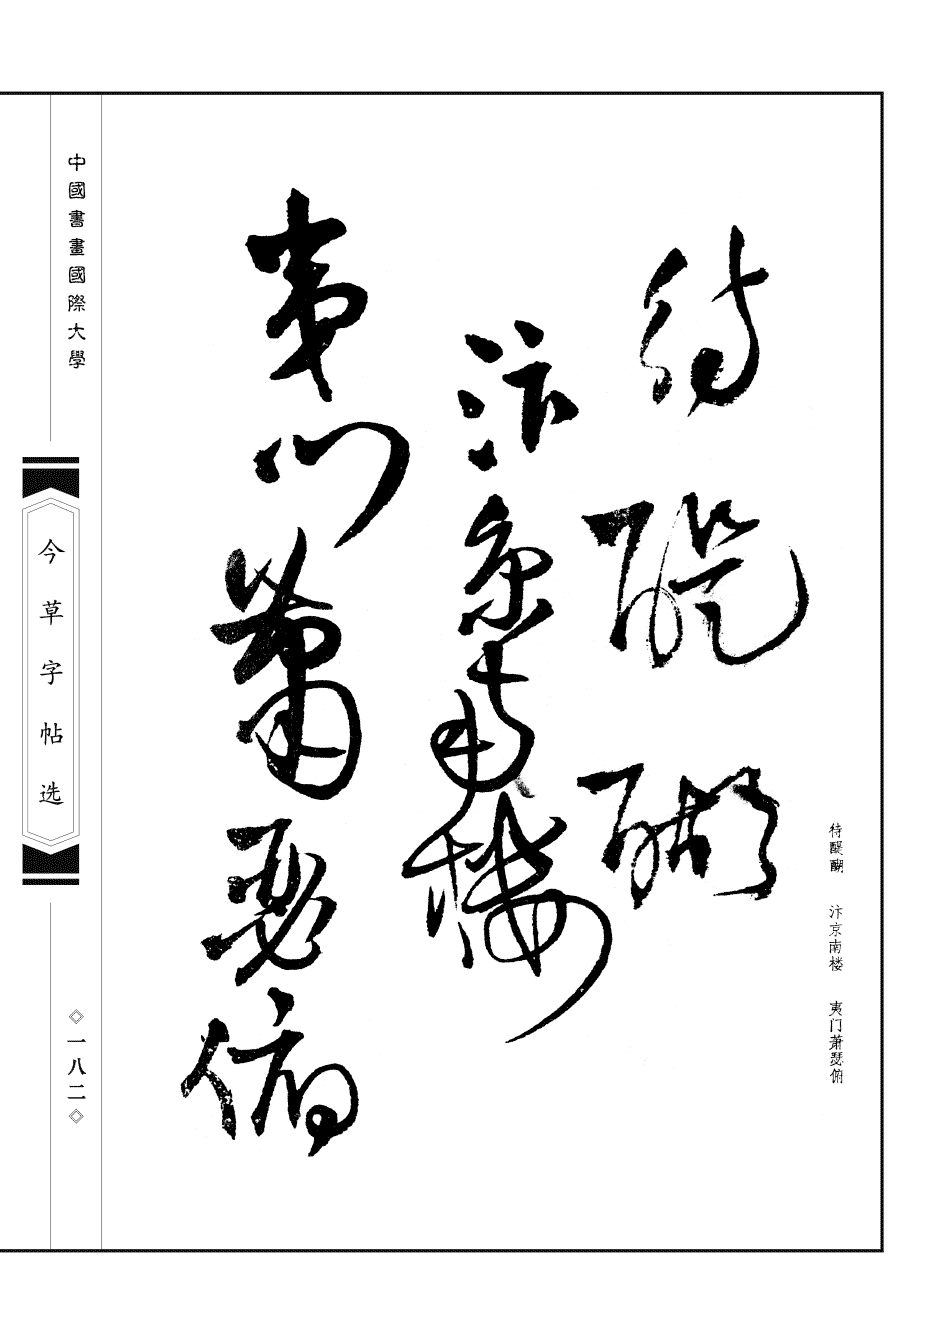 待醍醐
汴京南楼
夷门萧瑟俯
待醍醐 汴京南楼 夷门萧瑟俯
中國書畫國際大學
今草字帖选
一八二